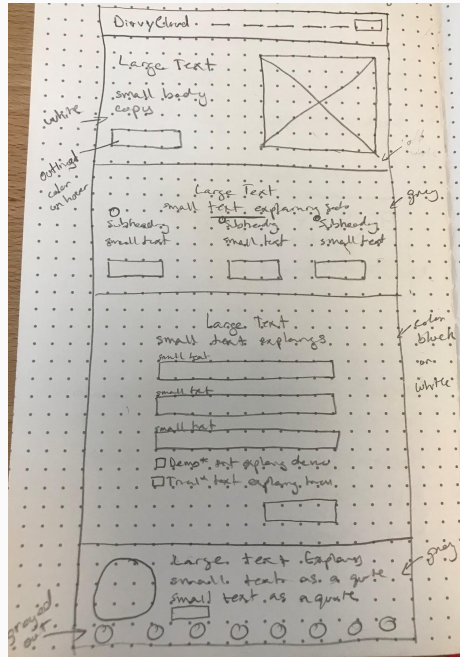 DirvyCloud
Large Text
small body
copy
white
outlined
color
on hover
Large Text
small text explaining
grey
Subheading Subheading Subheading
small text small text small text
Large Text
small text explaining
color
block
on
white
small text
small text
small text
Demo* text explaing demo
Trial* text explaing
Large text Explaing
small text as a quote
small text as a quote
grey
grayed
out